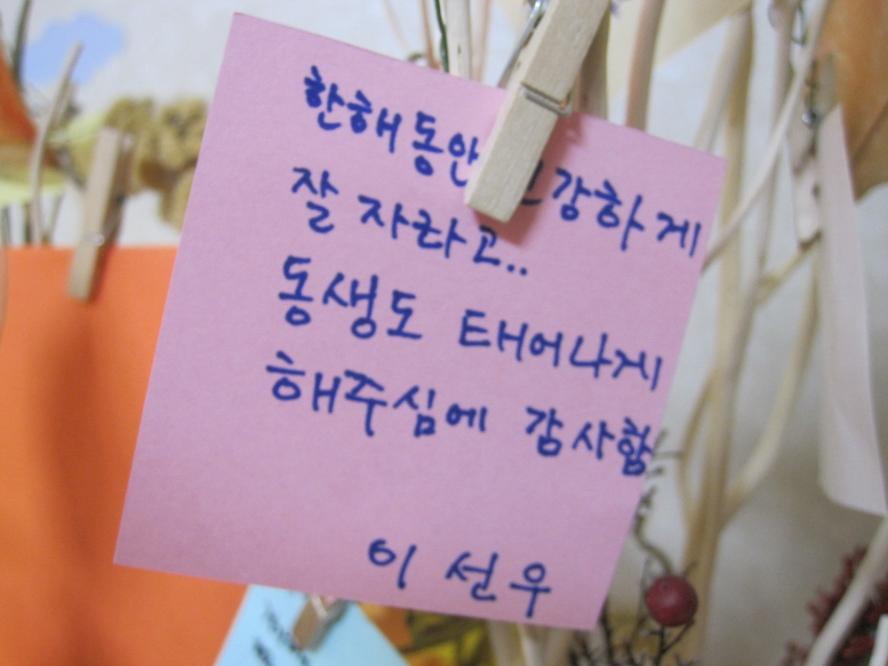 한해동안 건강하게
잘 자라고..
동생도 태어나게
해주심에 감사함
이 선우